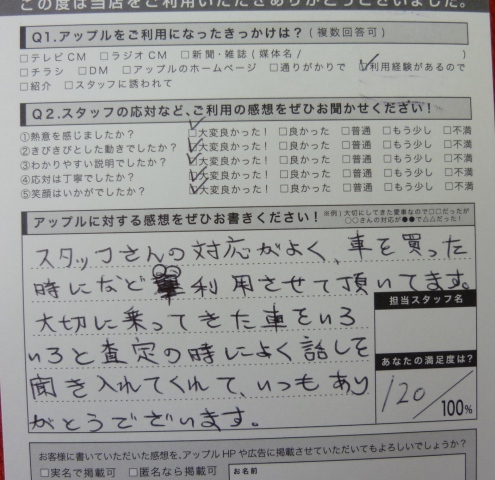 この度は当店をご利用いただきありがとうございました。
Q1.アップルをご利用になったきっかけは？(複数回答可)
□テレビCM □ラジオCM □新聞・雑誌(媒体名/ )
□チラシ □DM □アップルのホームページ □通りがかりで ☑利用経験があるので
□紹介 □スタッフに誘われて
Q2.スタッフの応対など、ご利用の感想をぜひお聞かせください！
①熱意を感じましたか？ ☑大変良かった！ □良かった □普通 □もう少し □不満
②きびきびとした動きでしたか？ ☑大変良かった！ □良かった □普通 □もう少し □不満
③わかりやすい説明でしたか？ ☑大変良かった！ □良かった □普通 □もう少し □不満
④応対は丁寧でしたか？ ☑大変良かった！ □良かった □普通 □もう少し □不満
⑤笑顔はいかがでしたか？ ☑大変良かった！ □良かった □普通 □もう少し □不満
アップルに対する感想をぜひお書きください！
※例)大切にしてきた愛車なので○○だったが
○○さんの対応が●●で△△だった！
スタッフさんの対応がよく、車を買った
時になど利用させて頂いてます。
大切に乗ってきた車をいろ
いろと査定の時によく話しを
聞き入れてくれて、いつもあり
がとうございます。
担当スタッフ名
あなたの満足度は？
120/100%
お客様に書いていただいた感想を、アップルHPや広告に掲載させていただいてもよろしいでしょうか？
□実名で掲載可 □匿名なら掲載可
お名前